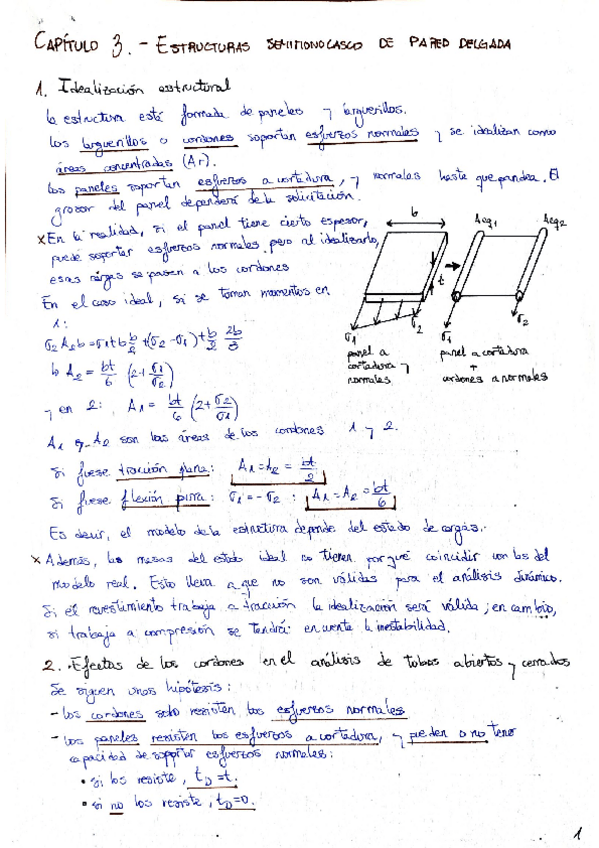 CAPÍTULO 3. - ESTRUCTURAS SEMIMONOCASCO DE PARED DELGADA
1. Idealización estructural
La estructura está formada de paneles y larguerillos.
Los larguerillos o cordones soportan esfuerzos normales y se idealizan como
áreas concentradas (Ar).
Los paneles soportan esfuerzos a cortadura, y normales hasta que pandea. El
grosor del panel dependerá de la solicitación.
x En la realidad, si el panel tiene cierto espesor,
puede soportar esfuerzos normales, pero al idealizarlo,
esas cargas se pasan a los cordones
En el caso ideal, si se toman momentos en
1:
σ2 A2 b = σ1 t b b/2 + (σ2 - σ1) t b/2 2b/3
b A2 = bt/6 (2 + σ1/σ2)
y en 2: A1 = bt/6 (2 + σ2/σ1)
b
t
σ1
σ2
panel a
cortadura y
normales
Aeq1
Aeq2
σ1
σ2
panel a cortadura
+
cordones a normales
A1 y A2 son las áreas de los cordones 1 y 2.
Si fuese tracción pura: A1 = A2 = bt/2
Si fuese flexión pura: σ1 = - σ2 ; A1 = A2 = bt/6
Es decir, el modelo de la estructura depende del estado de cargas.
x Además, las masas del estado ideal no tienen por qué coincidir con las del
modelo real. Esto lleva a que no son válidas para el análisis dinámico.
Si el revestimiento trabaja a tracción la idealización será válida; en cambio,
si trabaja a compresión se tendrá en cuenta la inestabilidad.
2. Efectos de los cordones en el análisis de tubos abiertos y cerrados
Se siguen unas hipótesis:
- Los cordones solo resisten los esfuerzos normales
- Los paneles resisten los esfuerzos a cortadura, y pueden o no tener
capacidad de soportar esfuerzos normales:
• Si los resiste, tD = t.
• Si no los resiste, tD = 0.
1